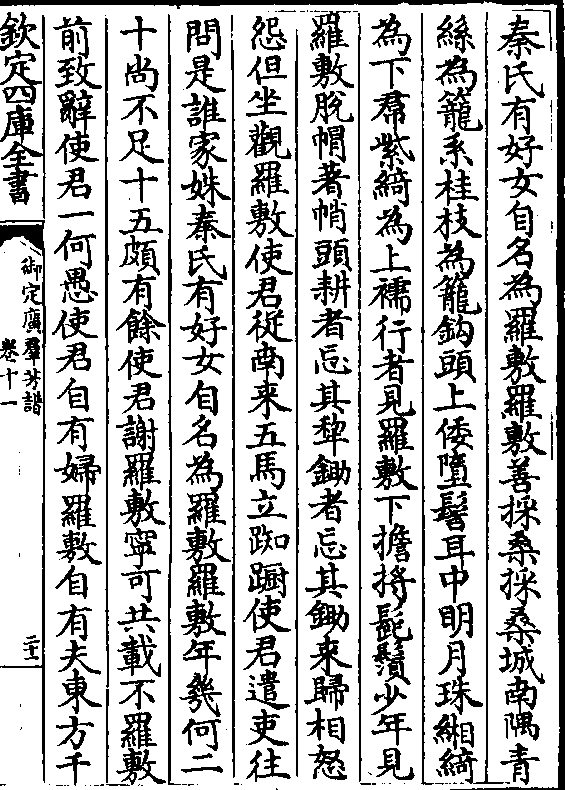 秦氏有好女自名為羅敷羅敷善採桑採桑城南隅青
絲為籠系桂枝為籠鈎頭上倭墮髻耳中明月珠緗綺
為下帬紫綺為上襦行者見羅敷下擔捋髭鬚少年見
羅敷脫帽著帩頭耕者忘其犂鋤者忘其鋤來歸相怒
怨但坐觀羅敷使君從南來五馬立踟蹰使君遣吏往
問是誰家姝秦氏有好女自名為羅敷羅敷年幾何二
十尚不足十五頗有餘使君謝羅敷寧可共載不羅敷
前致辭使君一何愚使君自有婦羅敷自有夫東方千
欽定四庫全書
御定廣羣芳譜
卷十一
二十一